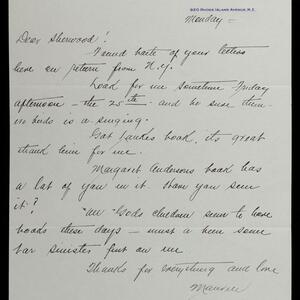 920 RHODE ISLAND AVENUE, N.E.
Monday –
Dear Sherwood!
Found both of your letters
here on return from N.Y.
Look for me sometime Friday
afternoon – the 25th – and be sure them
birds is a singing.
Got Yankes book, its great
thank him for me.
Margaret Andersons book has
a lot of you in it. Have you seen
it?
"All" Gods chedren seem to have
books these days – must a been some
bar sinister put on me
Thanks for everything and love